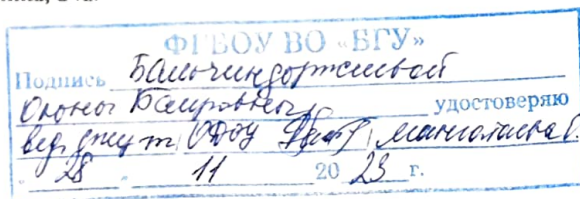 ФГБОУ ВО «БГУ»
Подпись Бальчиндоржиевой
Оюны Баировны удостоверяю
вед. докум. ОДОУ
" 28 " 11 20 23 г.